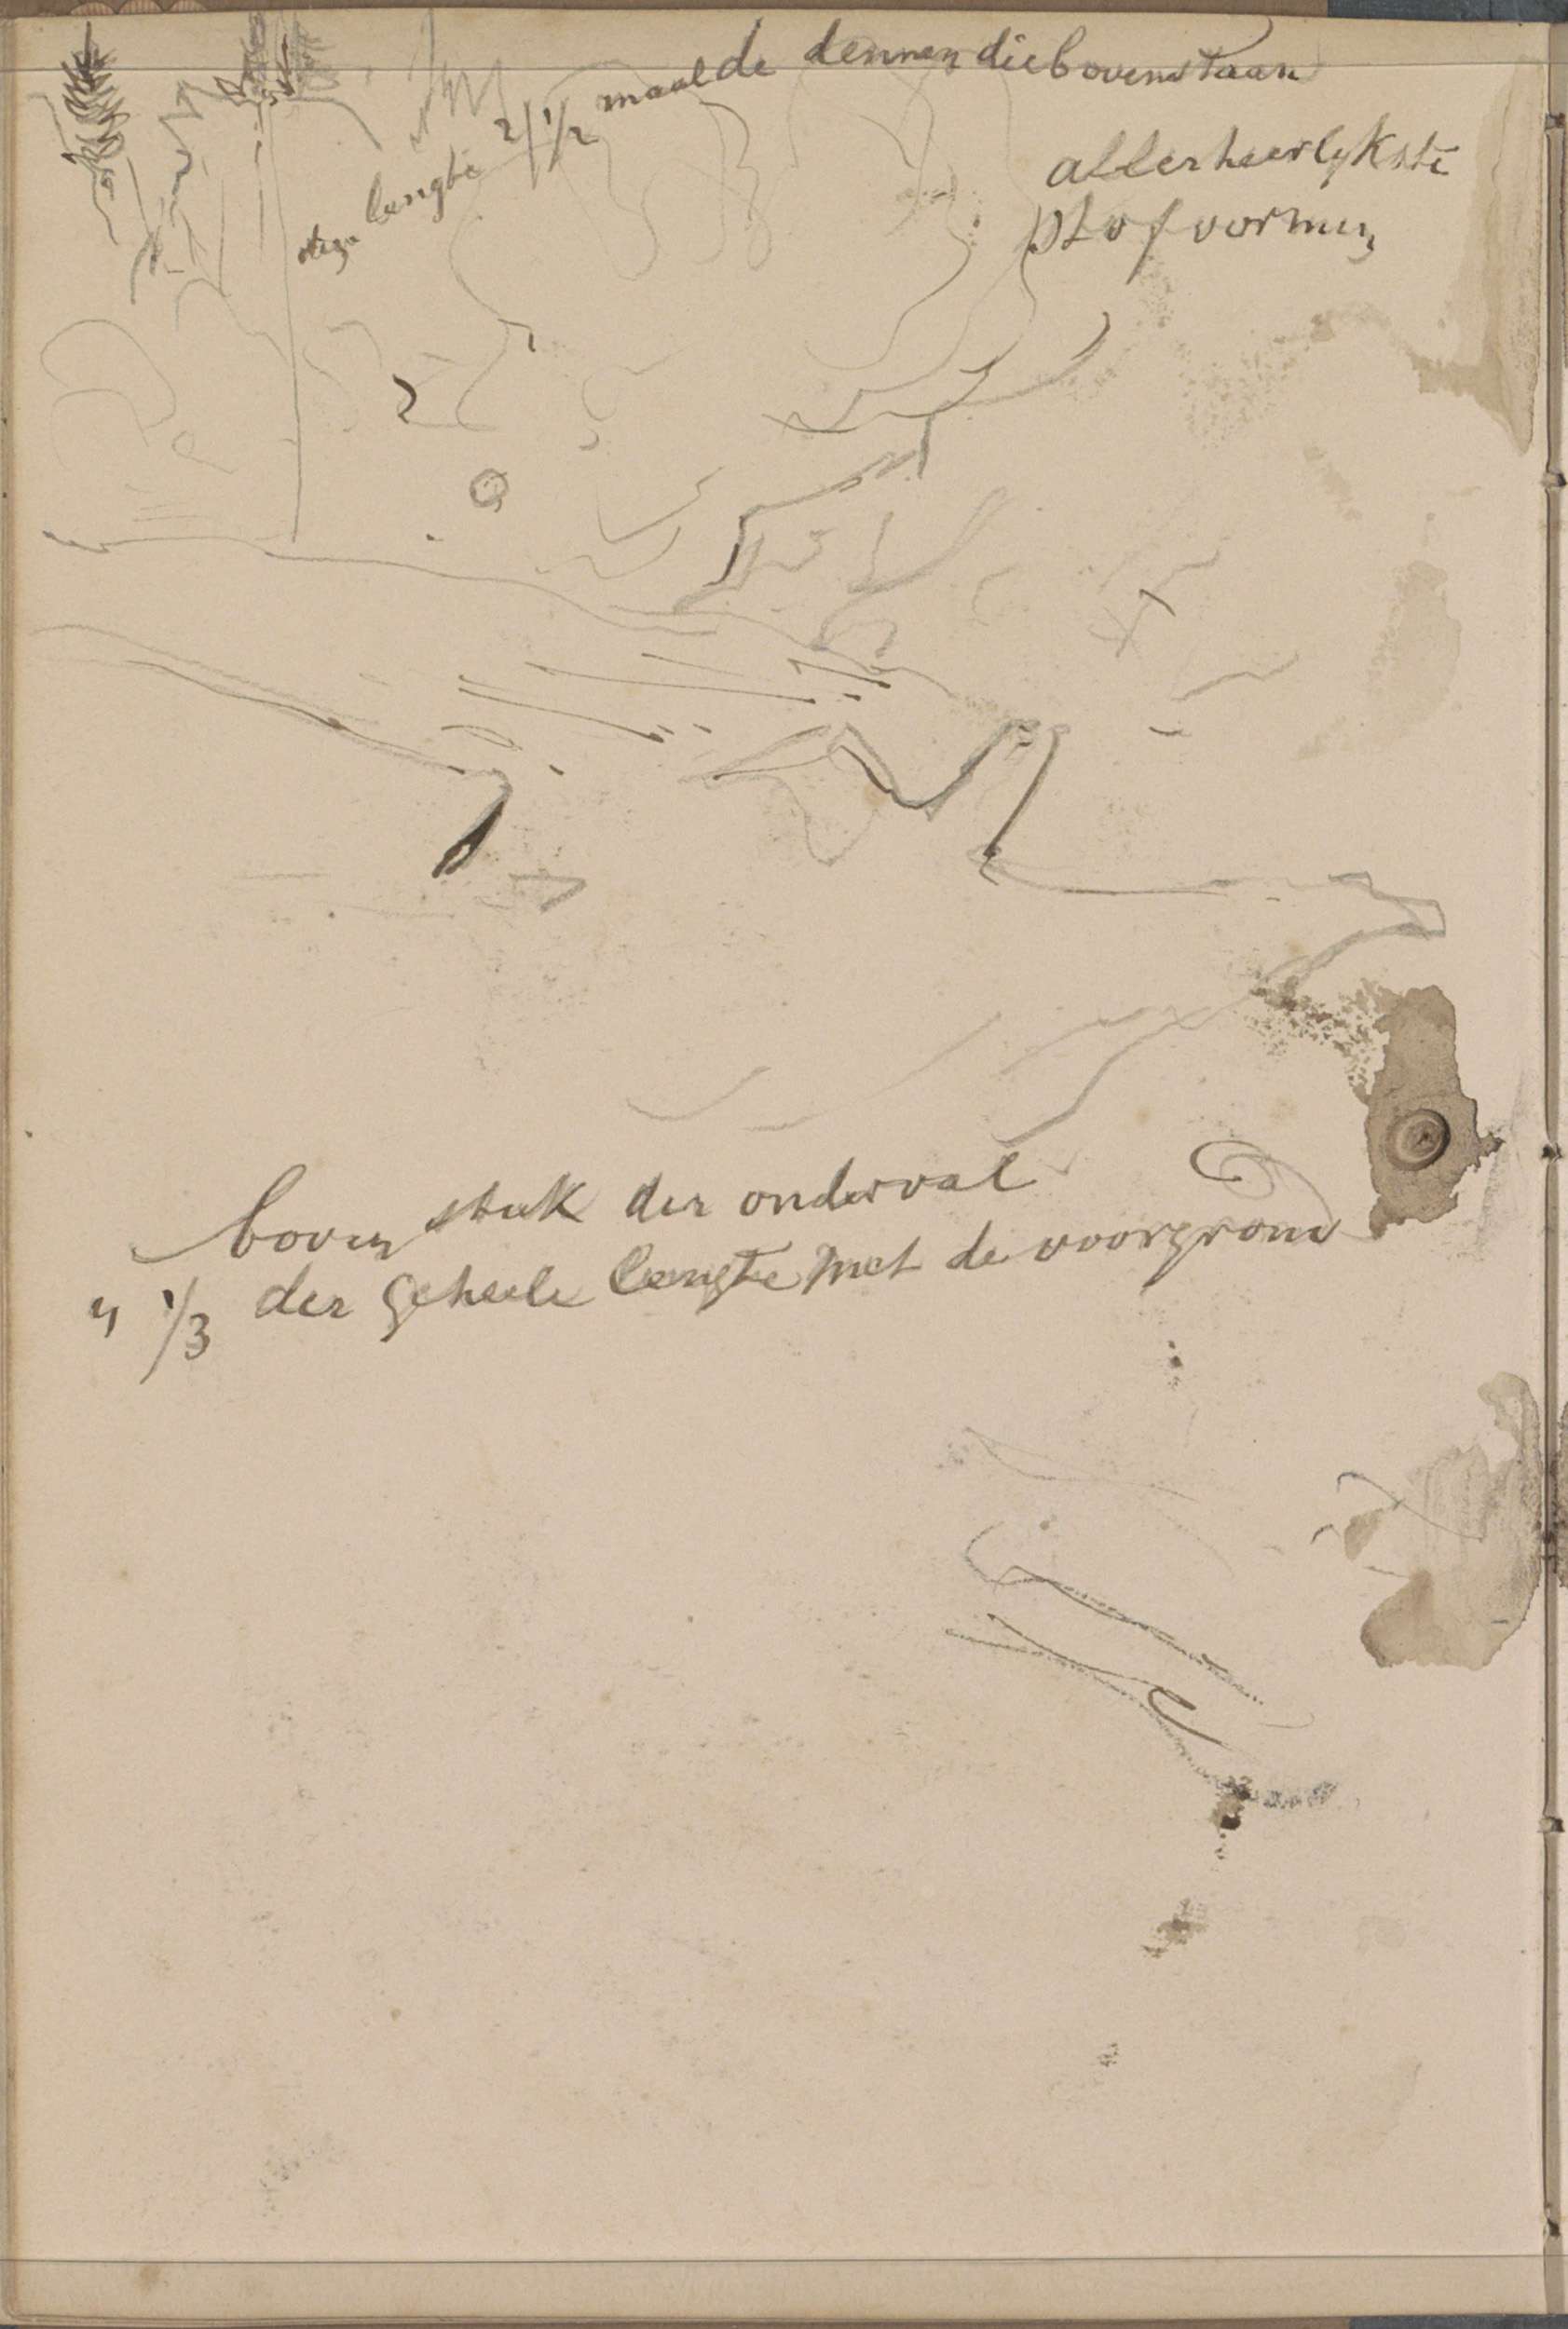 deze lengte 2 1/2 maal de dennen die bovenstaan
allerheerlykste
stofvormin
boven stuk der onderval
" 1/3 der geheele lengte met de voorgrond